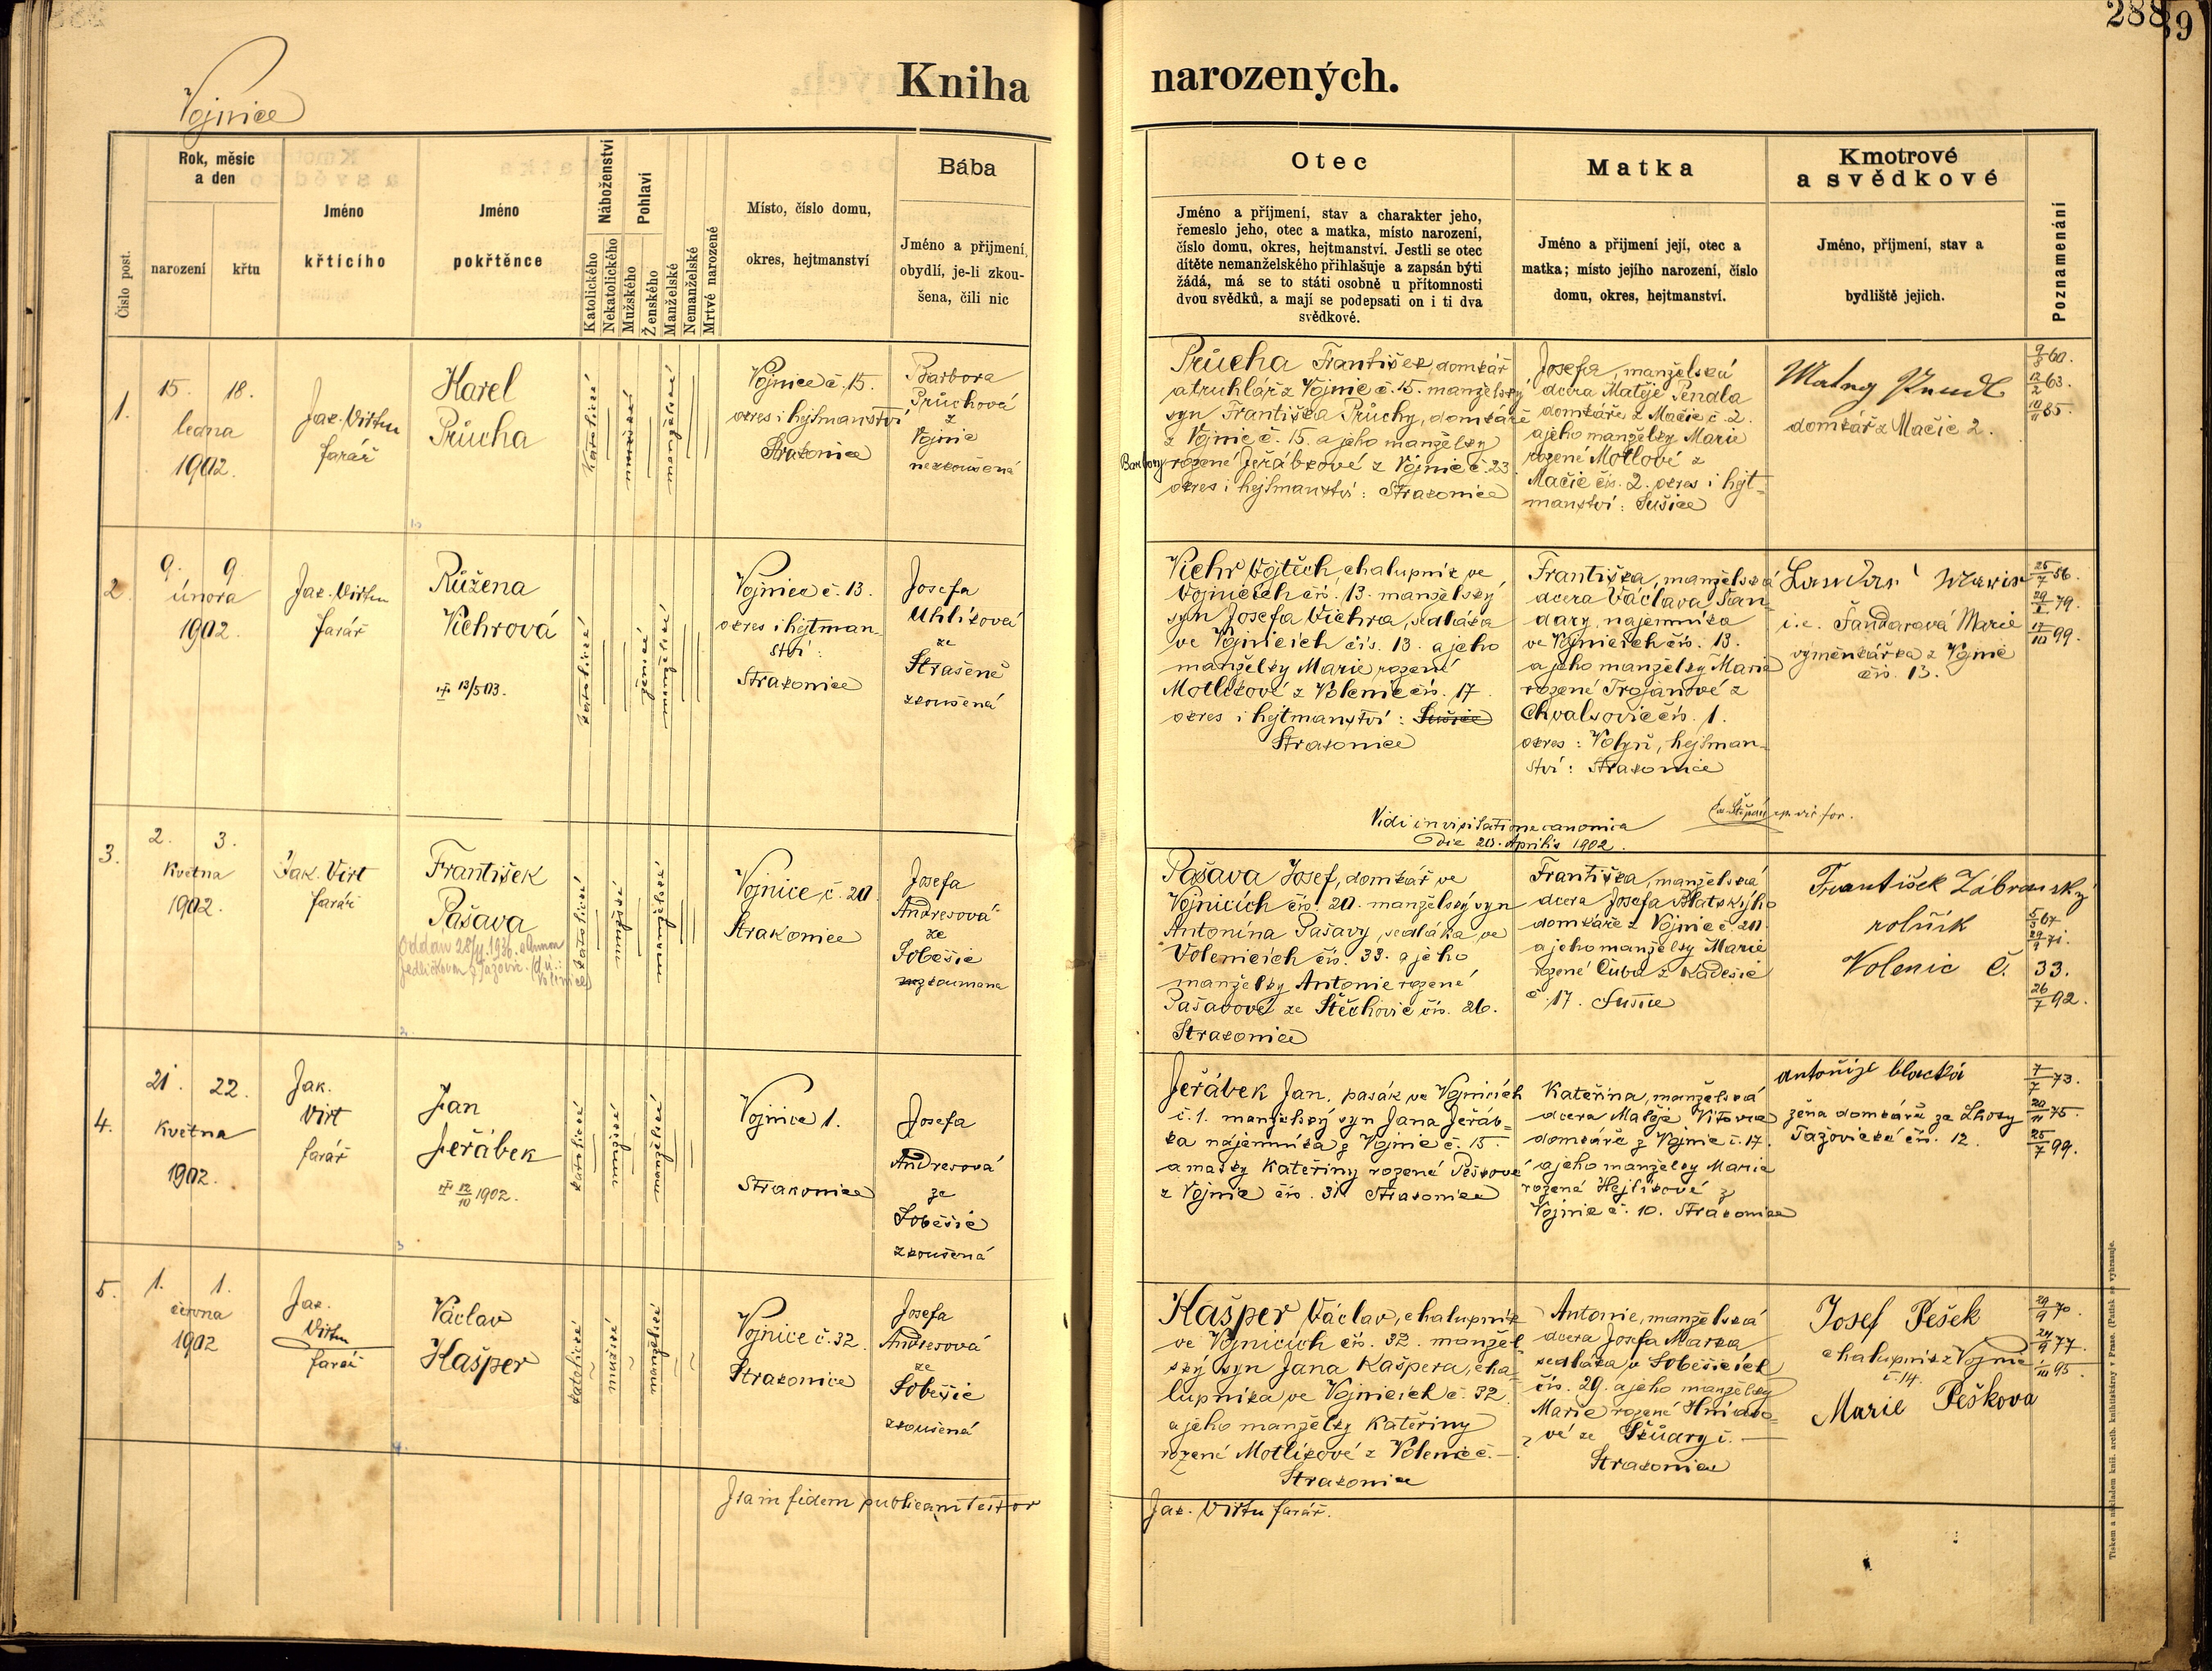 288
9
Vojnice
Kniha narozených.
Číslo post.
Rok, měsíc
a den
narození
křtu
Jméno
křtícího
Jméno
pokřtěnce
Náboženství
Katolického
Nekatolického
Pohlaví
Mužského
Ženského
Manželské
Nemanželské
Mrtvé narozené
Místo, číslo domu,
okres, hejtmanství
Bába
Jméno a přijmení,
obydlí, je-li zkou-
šena, čili nic
Otec
Jméno a příjmení, stav a charakter jeho,
řemeslo jeho, otec a matka, místo narození,
číslo domu, okres, hejtmanství. Jestli se otec
dítěte nemanželského přihlašuje a zapsán býti
žádá, má se to státi osobně u přítomnosti
dvou svědků, a mají se podepsati on i ti dva
svědkové.
Matka
Jméno a přijmení její, otec a
matka; místo jejího narození, číslo
domu, okres, hejtmanství.
Kmotrové
a svědkové
Jméno, příjmení, stav a
bydliště jejich.
Poznamenání
1.
15. 18.
ledna
1902.
Jak. Virtu
farář
Karel
Průcha
katolické
mužské
manželské
Vojnice č. 15.
okres i hejtmanství
Strakonice
Barbora
Průchová
z
Vojnic
nezkoušená
Průcha František, domkář
a truhlář z Vojnic č. 15. manželský
syn Františka Průchy, domkáře
z Vojnic č. 15. a jeho manželky
Barbory rozené Jeřábkové z Vojnic č. 23
okres i hejtmanství: Strakonice
Josefa, manželská
dcera Matěje Pendla
domkáře z Mačic č. 2.
a jeho manželky Marie
rozené Motlové z
Mačic čís. 2. okres i hejt-
manství: Sušice
domkář z Mačic 2.
9/3 60.
12/2 63.
10/11 85.
2.
9. 9.
února
1902.
Jak. Virtu
farář
Růžena
Vichrová
12/5 03.
katolické
ženské
manželské
Vojnice č. 13.
okres i hejtman-
ství:
Strakonice
Josefa
Uhlíková
ze
Strašené
zkoušená
Vichr Vojtěch, chalupník ve
Vojnicích čís. 13. manželský
syn Josefa Vichra, sedláka
ve Vojnicích čís. 13. a jeho
manželky Marie rozené
Motlíkové z Volenic čís. 17.
okres i hejtmanství: Sušice
Strakonice
Františka, manželská
dcera Václava Šan-
dary, nájemníka
ve Vojnicích čís. 13.
a jeho manželky Marie
rozené Trojanové z
Chvalšovic čís. 1.
okres: Volyň, hejtman-
ství: Strakonice
i.e. Šandarová Marie
výměnkářka z Vojnic
čís. 13.
25/7 56.
17/10 99.
Vidi in visitatione canonica
die 20. Aprilis 1902.
3.
2. 3.
května
1902.
Jak. Virt
farář
František
Pašava
Oddán 28/4. 1930. s Annou
Jedličkovou z Tažovic.
katolické
mužské
manželské
Vojnice č. 20
Strakonice
Josefa
Andresová
ze
Soběšic
zkoumana
Pašava Josef, domkář ve
Vojnicích čís. 20. manželský syn
Antonína Pašavy, sedláka ve
Volenicích čís. 33. a jeho
manželky Antonie rozené
Pašavové ze Štěchovic čís. 26.
Strakonice
Františka, manželská
dcera Josefa Blatského
domkáře z Vojnic č. 20
a jeho manželky Marie
rozené Čubu z Kadešic
č. 17. Sušice
František Zábranský
rolník
Volenic č. 33.
5/3 67
29/9 71.
26/7 92.
4.
21. 22.
května
1902.
Jak.
Virt
farář
Jan
Jeřábek
12/10 1902.
katolické
mužské
manželské
Vojnice 1.
Strakonice
Josefa
Andresová
ze
Soběšic
zkoušená
Jeřábek Jan, pasák ve Vojnicích
č. 1. manželský syn Jana Jeřáb-
ka nájemníka z Vojnic č. 15
a matky Kateřiny rozené Peškové
z Vojnic čís. 31 Strakonice
Kateřina, manželská
dcera Matěje Vítovce
domkáře z Vojnic č. 17.
a jeho manželky Marie
rozené Hejlíkové z
Vojnic č. 10. Strakonice
žena domkáře ze Lhoty
Tažovické čís. 12.
7/7 73.
20/11 75.
25/7 99.
5.
1. 1.
června
1902
Jak.
Virtu
farář
Václav
Kašper
katolické
mužské
manželské
Vojnice č. 32.
Strakonice
Josefa
Andresová
ze
Soběšic
zkoušená
Kašper Václav, chalupník
ve Vojnicích čís. 32. manžel-
ský syn Jana Kašpera, cha-
lupníka ve Vojnicích č. 32
a jeho manželky Kateřiny
rozené Motlíkové z Volenic č. —
Strakonice
Antonie, manželská
dcera Josefa Marka
sedláka, v Soběšicích
čís. 29. a jeho manželky
Marie rozené
vé ze
Strakonice
Josef Pešek
chalupník z Vojnic
č. 14.
Marie Peškova
29/9 70.
24/9 77.
1/10 95.
Ita in fidem publicam testor
Jak. Virtu farář.
Tiskem a nákladem kníž. arcib. knihtiskárny v Praze. (Patisk se vyhrazuje.